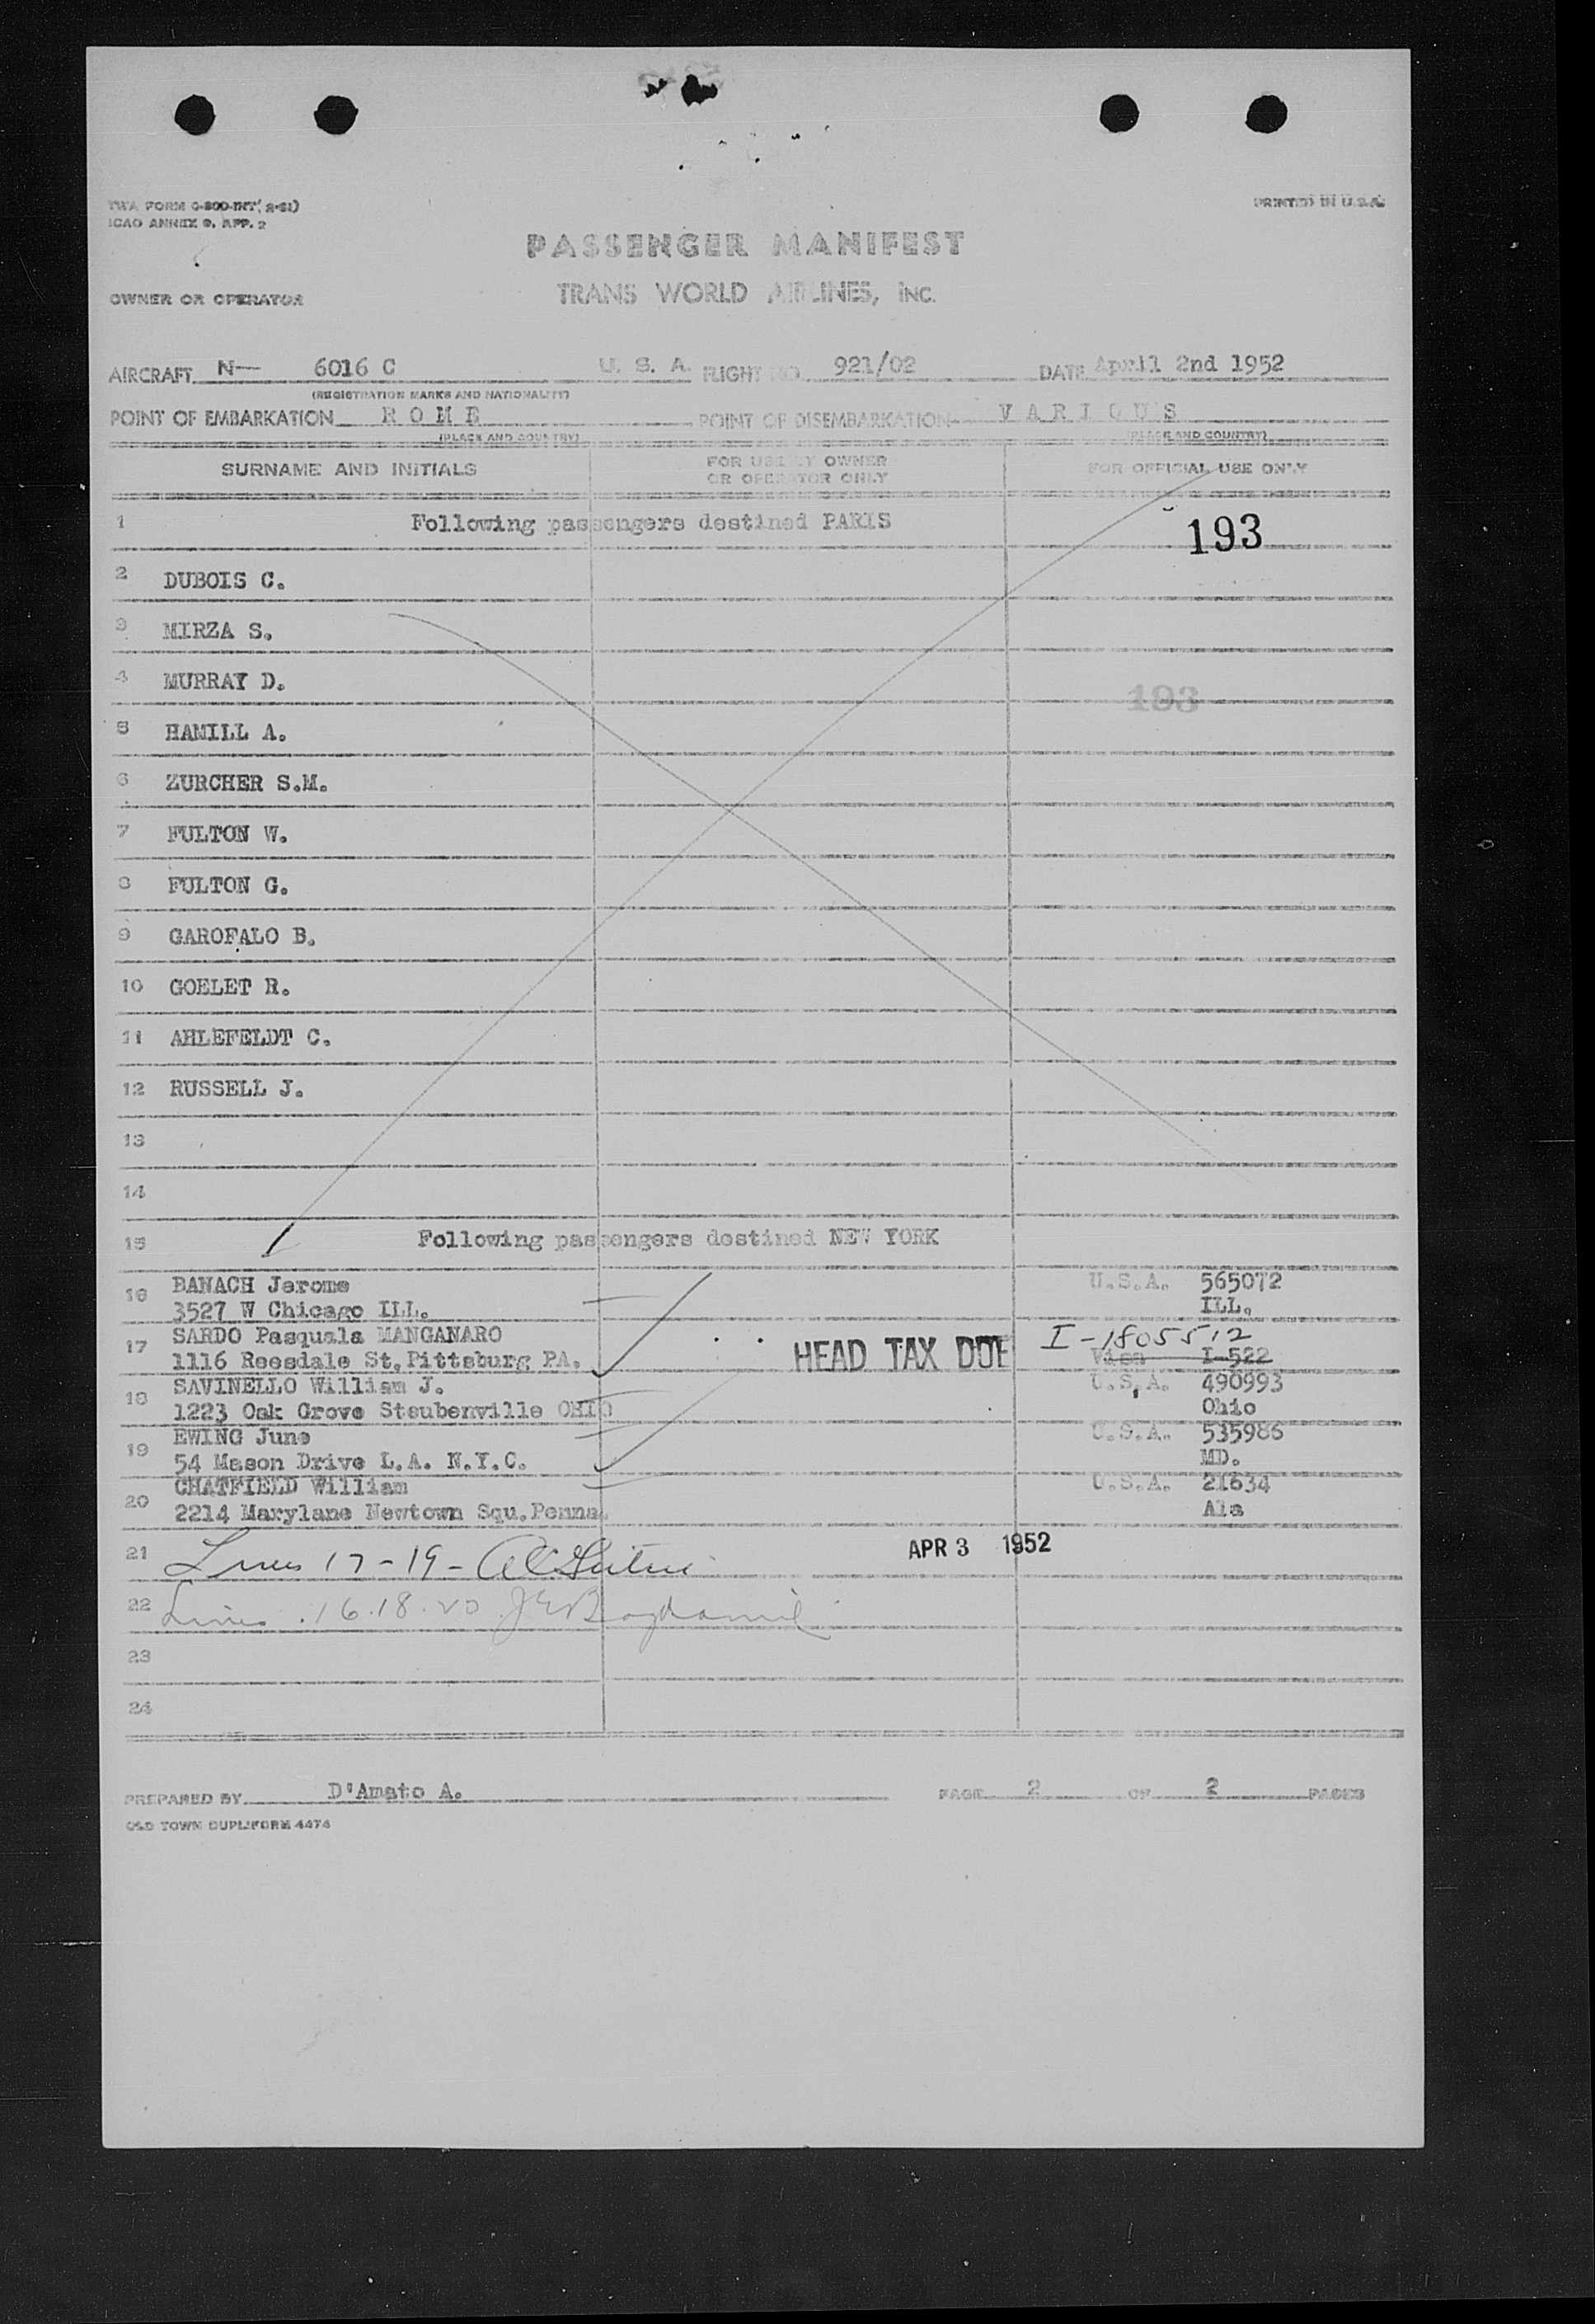 TWA FORM O-800-INT (2-51)
ICAO ANNEX 9, APP. 2
PRINTED IN U.S.A.
PASSENGER MANIFEST
OWNER OR OPERATOR
TRANS WORLD AIRLINES, INC.
AIRCRAFT N— 6016 C U. S. A. FLIGHT NO. 921/02 DATE April 2nd 1952
(REGISTRATION MARKS AND NATIONALITY)
POINT OF EMBARKATION R O M E POINT OF DISEMBARKATION V A R I O U S
(PLACE AND COUNTRY) (PLACE AND COUNTRY)
SURNAME AND INITIALS FOR USE BY OWNER OR OPERATOR ONLY FOR OFFICIAL USE ONLY
1 Following passengers destined PARIS 193
2 DUBOIS C.
3 MIRZA S.
4 MURRAY D. 193
5 HAMILL A.
6 ZURCHER S.M.
7 FULTON W.
8 FULTON G.
9 GAROFALO B.
10 GOELET R.
11 AHLEFELDT C.
12 RUSSELL J.
13
14
15 Following passengers destined NEW YORK
16 BANACH Jerome U.S.A. 565072
3527 W Chicago ILL. ILL.
17 SARDO Pasquala MANGANARO HEAD TAX DUE I-1805512
1116 Reesdale St. Pittsburg PA. Visa I-522
18 SAVINELLO William J. U.S.A. 490993
1223 Oak Grove Steubenville OHIO Ohio
19 EWING June U.S.A. 535986
54 Mason Drive L.A. N.Y.C. MD.
20 CHATFIELD William U.S.A. 21634
2214 Marylane Newtown Squ.Penna. Ala
21 Lines 17-19- APR 3 1952
22 Lines 16.18.20
23
24
PREPARED BY D'Amato A. PAGE 2 OF 2 PAGES
OLD TOWN DUPLIFORM 4474